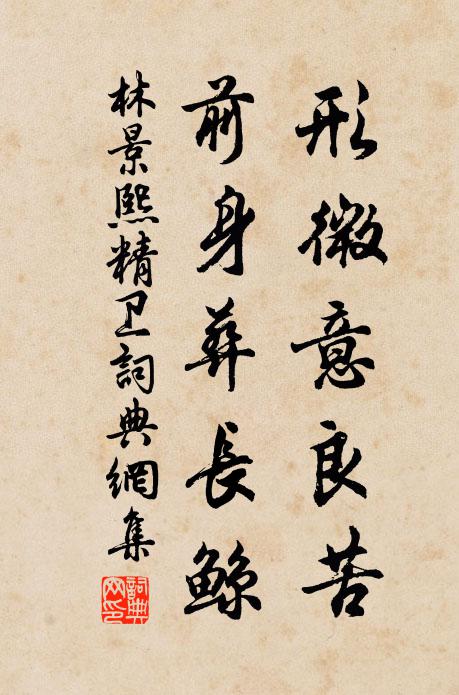 形微意良苦
前身葬長鯨
林景熙精卫詞典網集
詞典網印